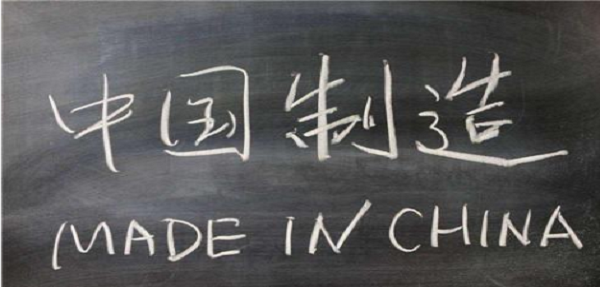 中国制造
MADE IN CHINA